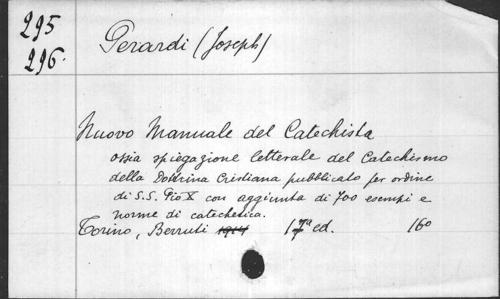 295
296.
Perardi (Joseph)
Nuovo Manuale del Catechista
ossia spiegazione letterale del Catechismo
della Dottrina Cristiana pubblicato per ordine
di S.S. Pio X con aggiunta di 700 esempi e
norme di catechetica.
Torino, Berruti 1914 17ª ed. 16º